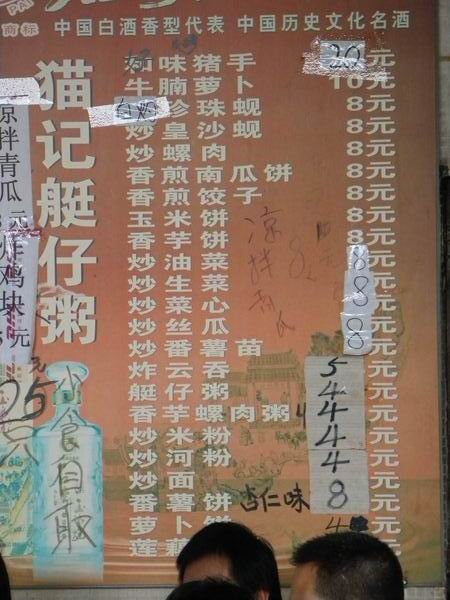 商标
中国白酒香型代表 中国历史文化名酒
猫记艇仔粥
味猪手 20元
牛腩萝卜 10元
白灼珍珠蚬 8元
炒皇沙蚬 8元
炒螺肉 8元
香煎南瓜饼 8元
香煎饺子 8元
玉米饼 8元
香芋饼 8元
炒油菜 8元
炒生菜 8元
炒菜心 8元
炒丝瓜 8元
炒番薯苗 元
炸云吞 5元
艇仔粥 4元
香芋螺肉粥 4元
炒米粉 4元
炒河粉 4元
炒面 元
番薯饼 杏仁味 8元
萝卜饼 4元
莲藕饼 元
凉拌青瓜
元
炸鸡块
元
凉拌
8
小食自取